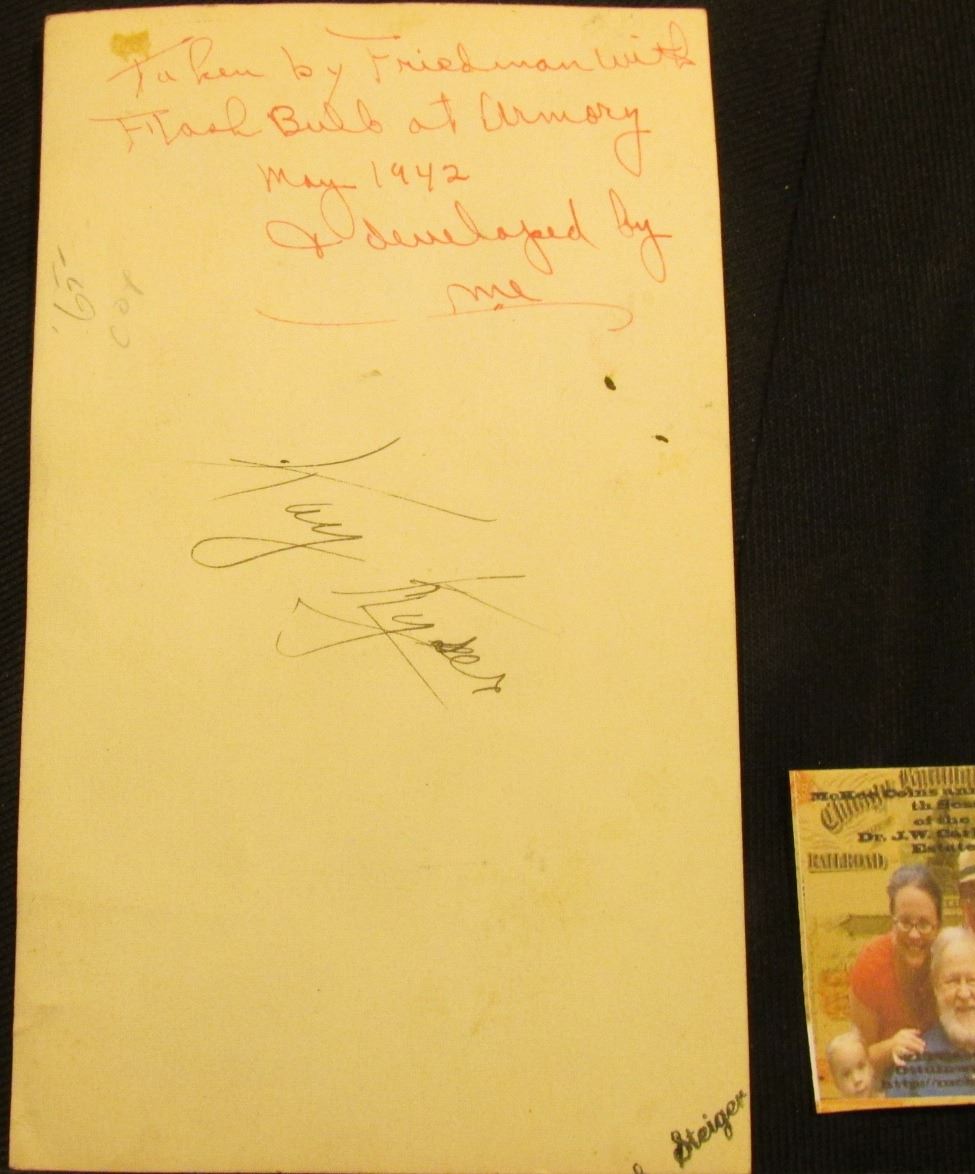 Taken by Friedman with
Flash Bulb at Armory
May 1942
& developed by
me
'65
cor
Kay
Kyser
Steiger
McKee Coins an
th Sea
of the
Dr. J.W. Car
Estate
RAILROAD,
http://mck